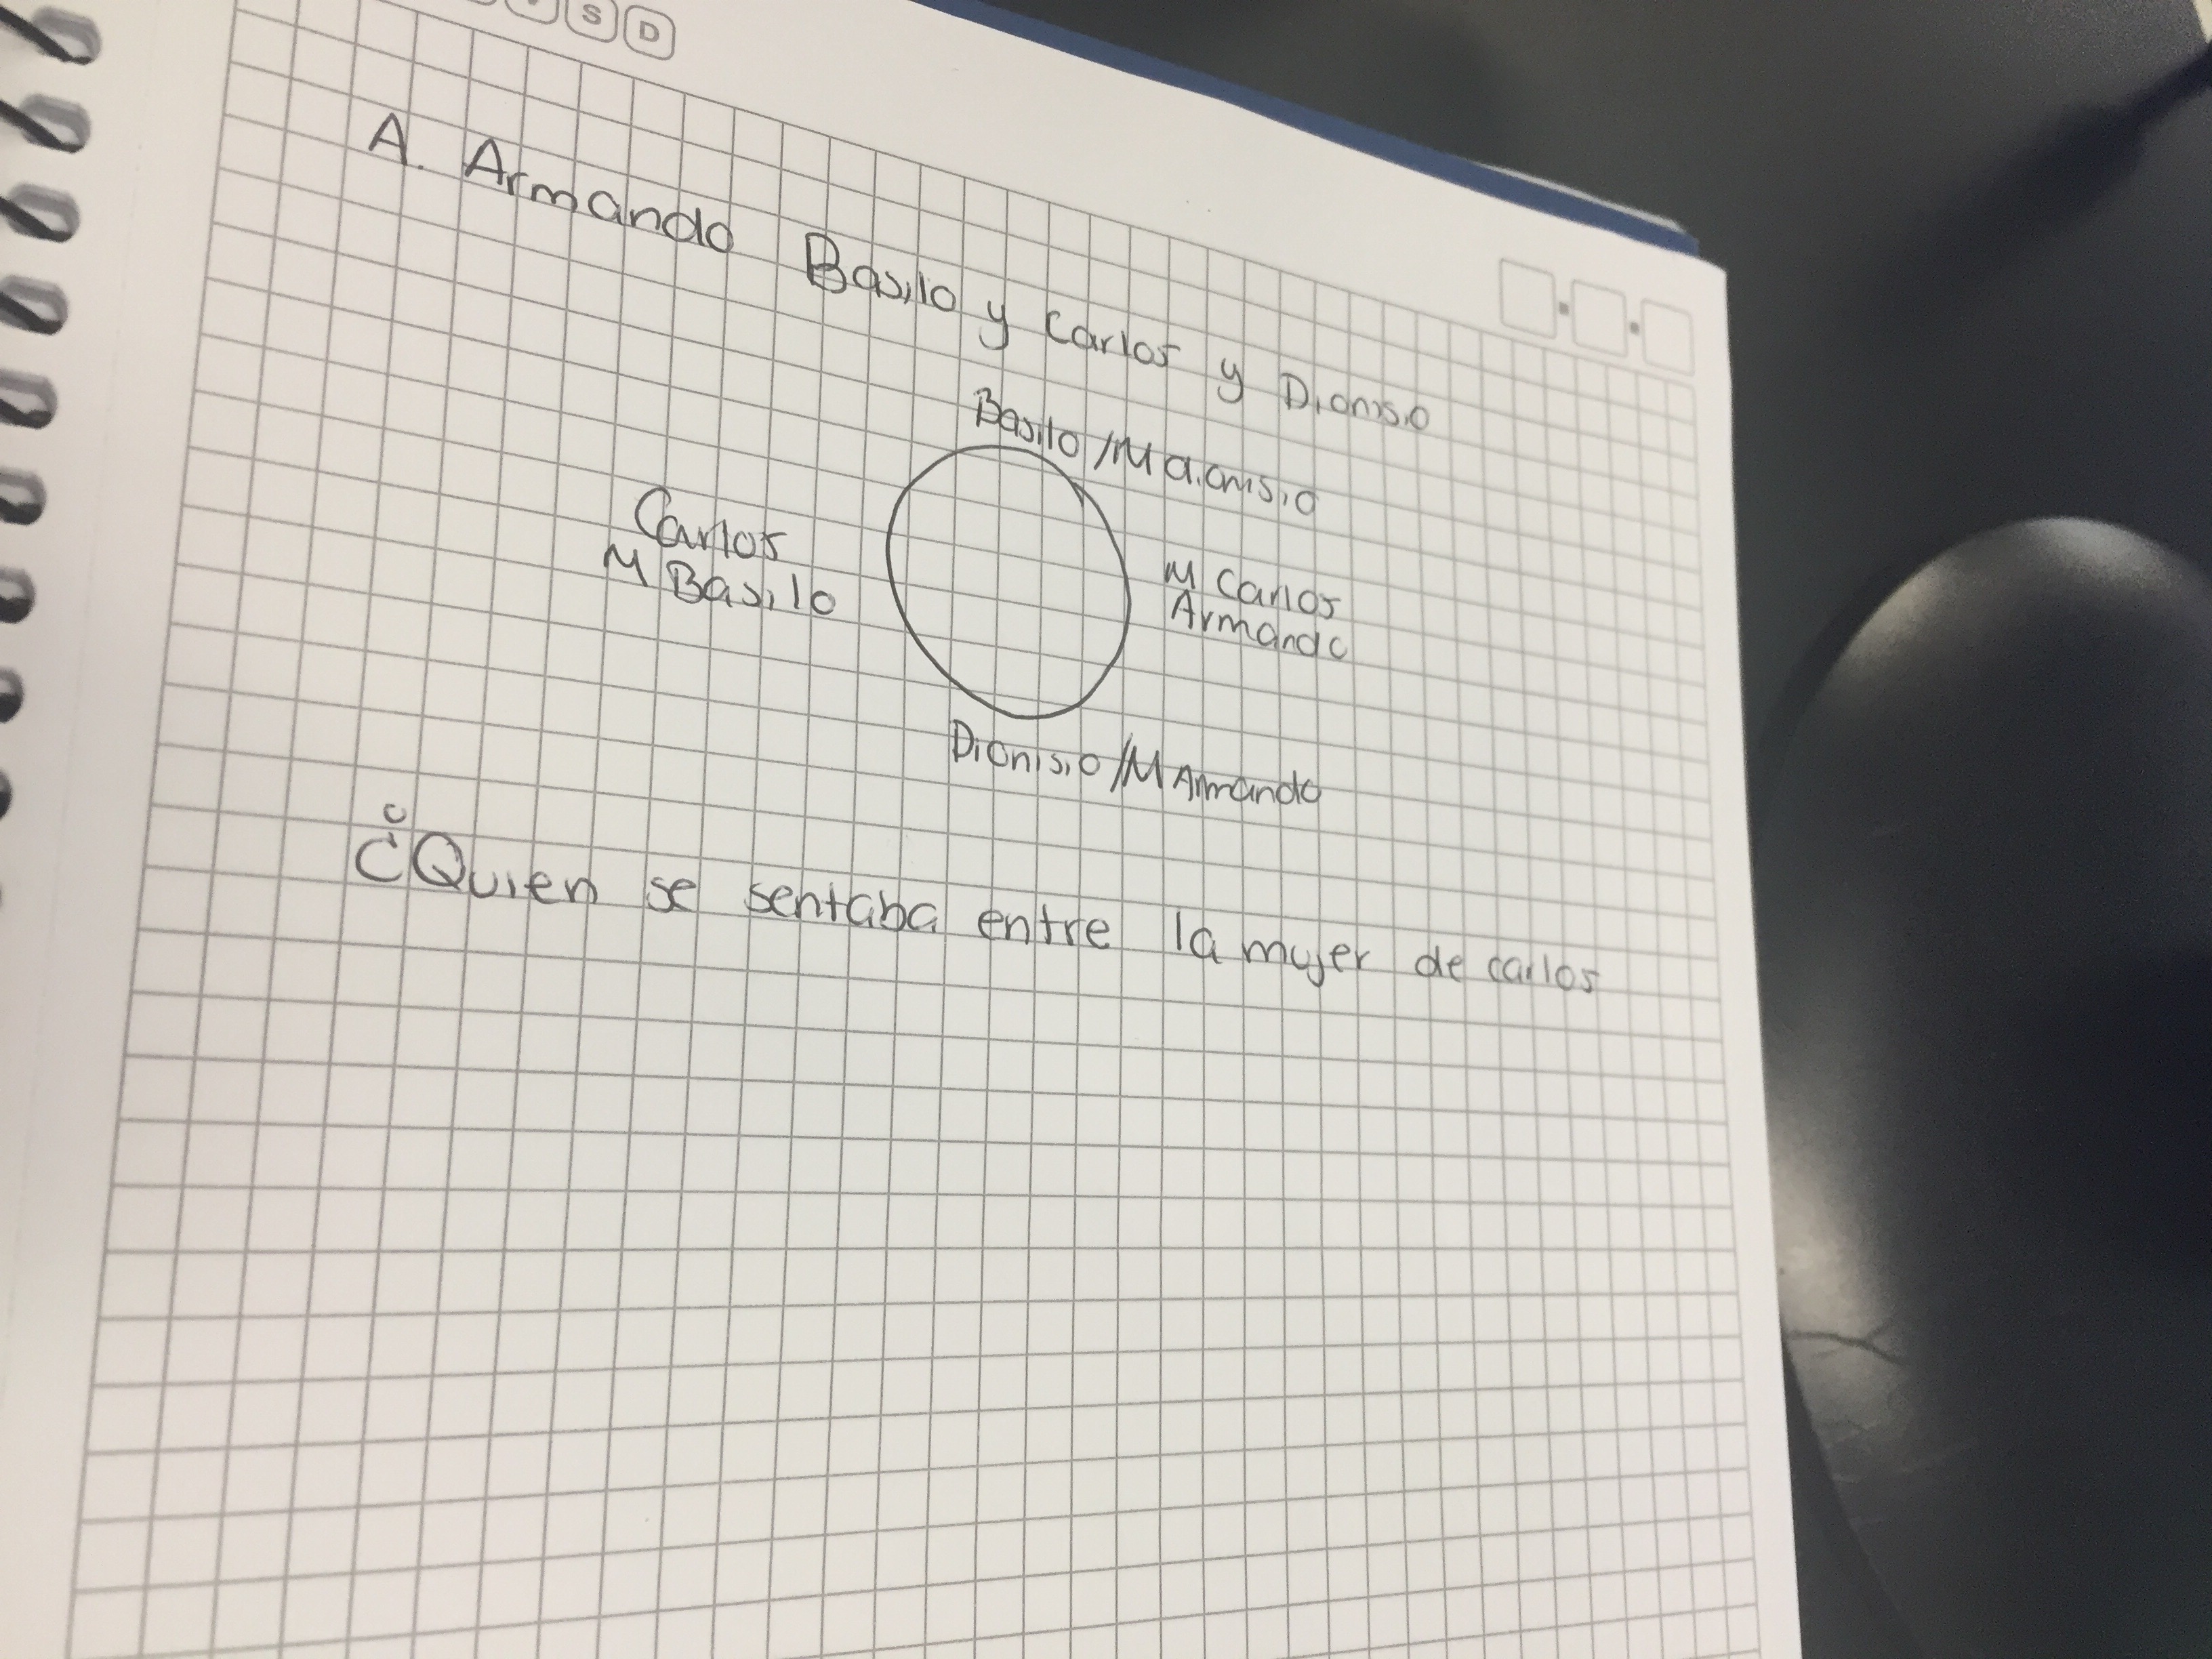 S D
A. Armando Basilo y carlos y Dionisio
Basilo /M dionisio
Carlos
M Basilo
M Carlos
Armando
Dionisio /M Armando
¿Quien se sentaba entre la mujer de carlos